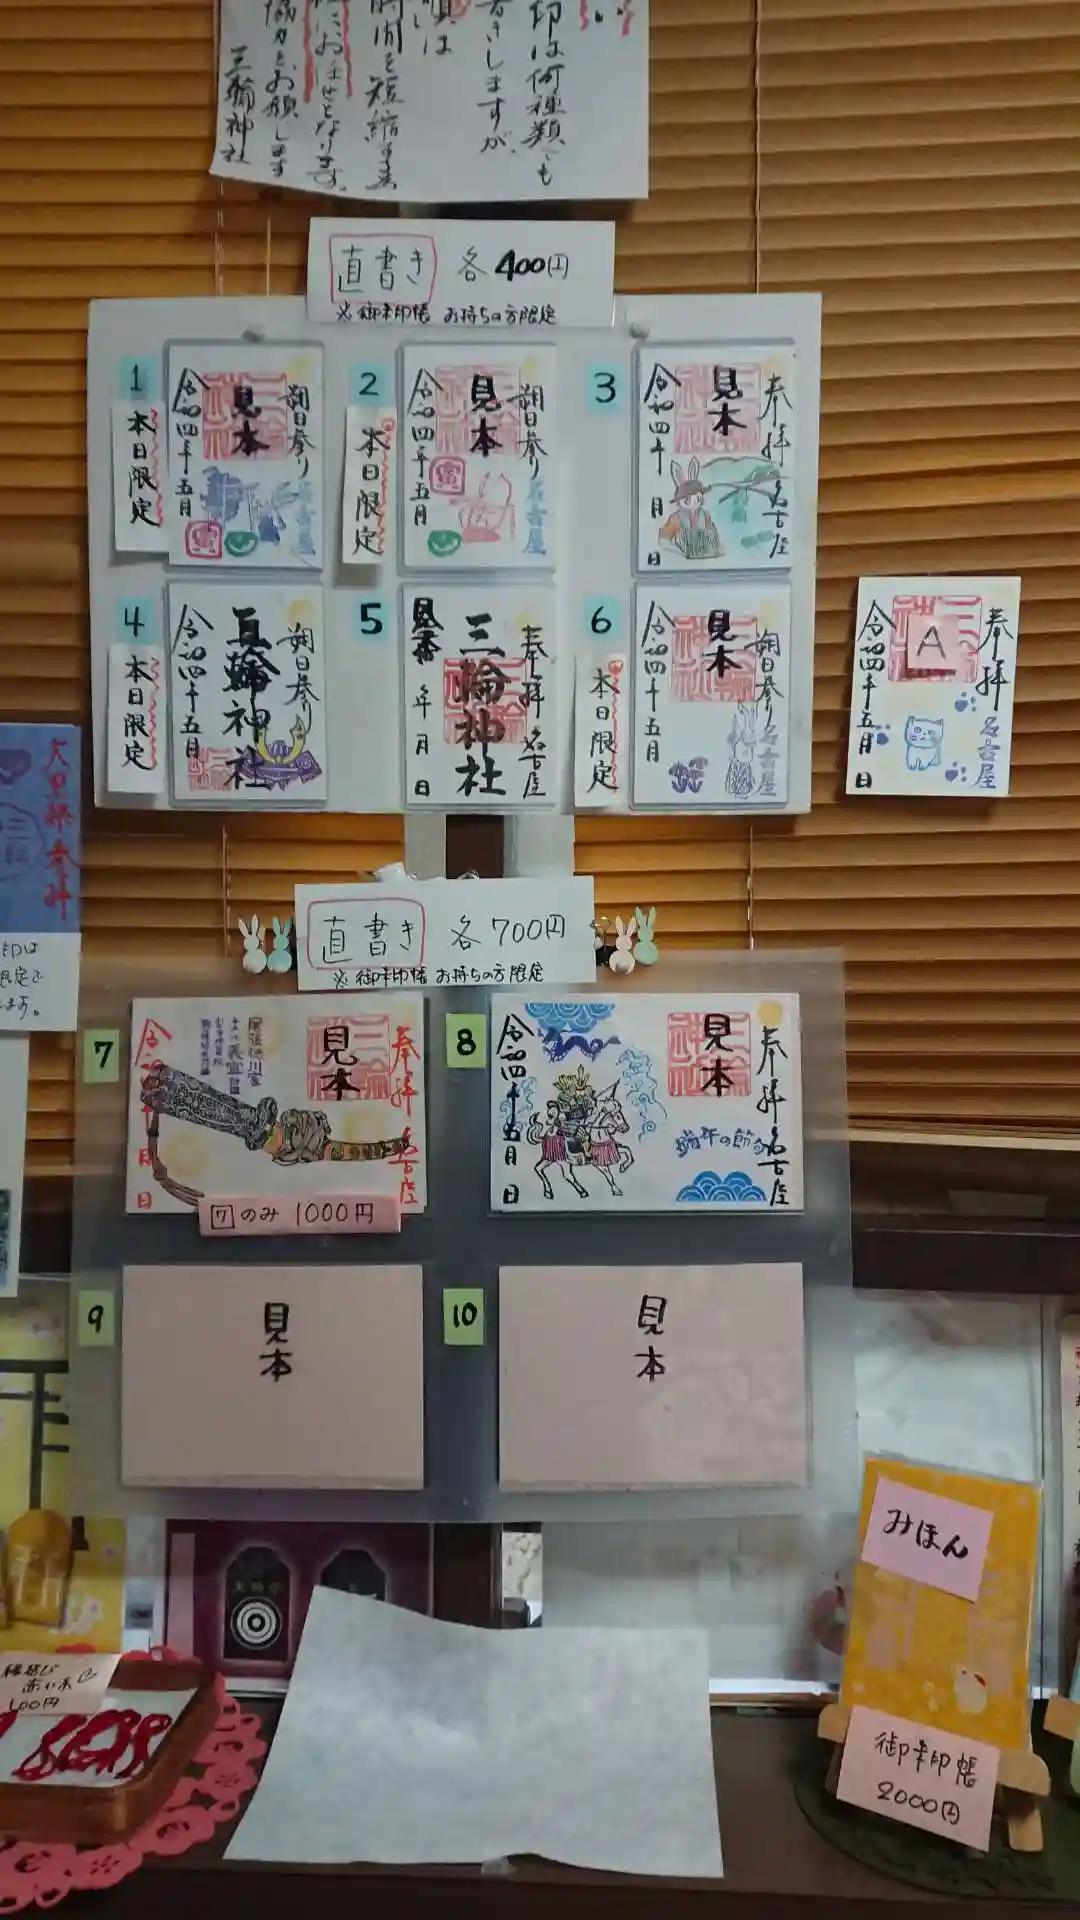 印は何種類でも
書きしますが、
時間を短縮する為
におまかせとなります。
協力をお願いします
三輪神社
直書き 各400円
※御朱印帳 お持ちの方限定
1
本日限定
朔日参り 名古屋
見本
令和四年五月
2
本日限定
朔日参り 名古屋
見本
寅
令和四年五月
3
奉拝 名古屋
見本
令和四年 月 日
4
本日限定
朔日参り
三輪神社
令和四年五月
5
奉拝 名古屋
三輪神社
見本
年 月 日
6
本日限定
朔日参り 名古屋
見本
令和四年五月
奉拝 名古屋
A
令和四年五月 日
直書き 各700円
※御朱印帳 お持ちの方限定
7
奉拝 名古屋
見本
尾張徳川家
義宣
令和四年 月 日
7のみ 1000円
8
奉拝 名古屋
見本
端午の節句
令和四年五月 日
9
見本
10
見本
みほん
御朱印帳
2000円
縁結び
赤い糸
100円